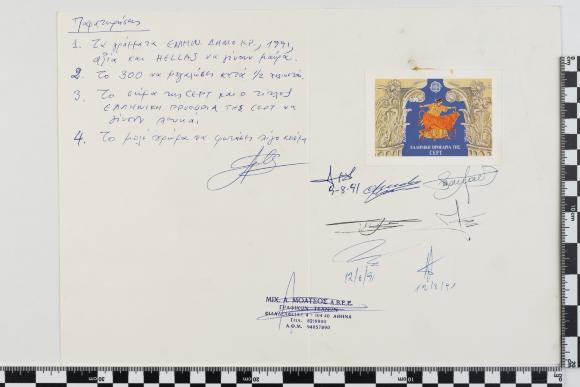 Παρατηρήσεις
1. Τα γράμματα ΕΛΛΗΝ. ΔΗΜΟΚΡ., 1991,
αξία και HELLAS να γίνουν μαύρα.
2. Το 300 να μεγαλώσει κατά 1/2 χιλιοστό.
3. Το σήμα της CEPT και ο τίτλος
ΕΛΛΗΝΙΚΗ ΠΡΟΕΔΡΙΑ ΤΗΣ CEPT να
γίνουν λευκά.
4. Το μπλέ χρώμα να φωτίσει λίγο ακόμα
ΕΛΛΗΝΙΚΗ ΠΡΟΕΔΡΙΑ ΤΗΣ
CEPT
9-8-91
12/8/91
12/8/91
ΜΙΧ. Α. ΜΟΑΤΣΟΣ Α.Β.Ε.Ε.
ΓΡΑΦΙΚΩΝ ΤΕΧΝΩΝ
104 40 ΑΘΗΝΑ
ΤΗΛ.
Α.Φ.Μ. 94057890